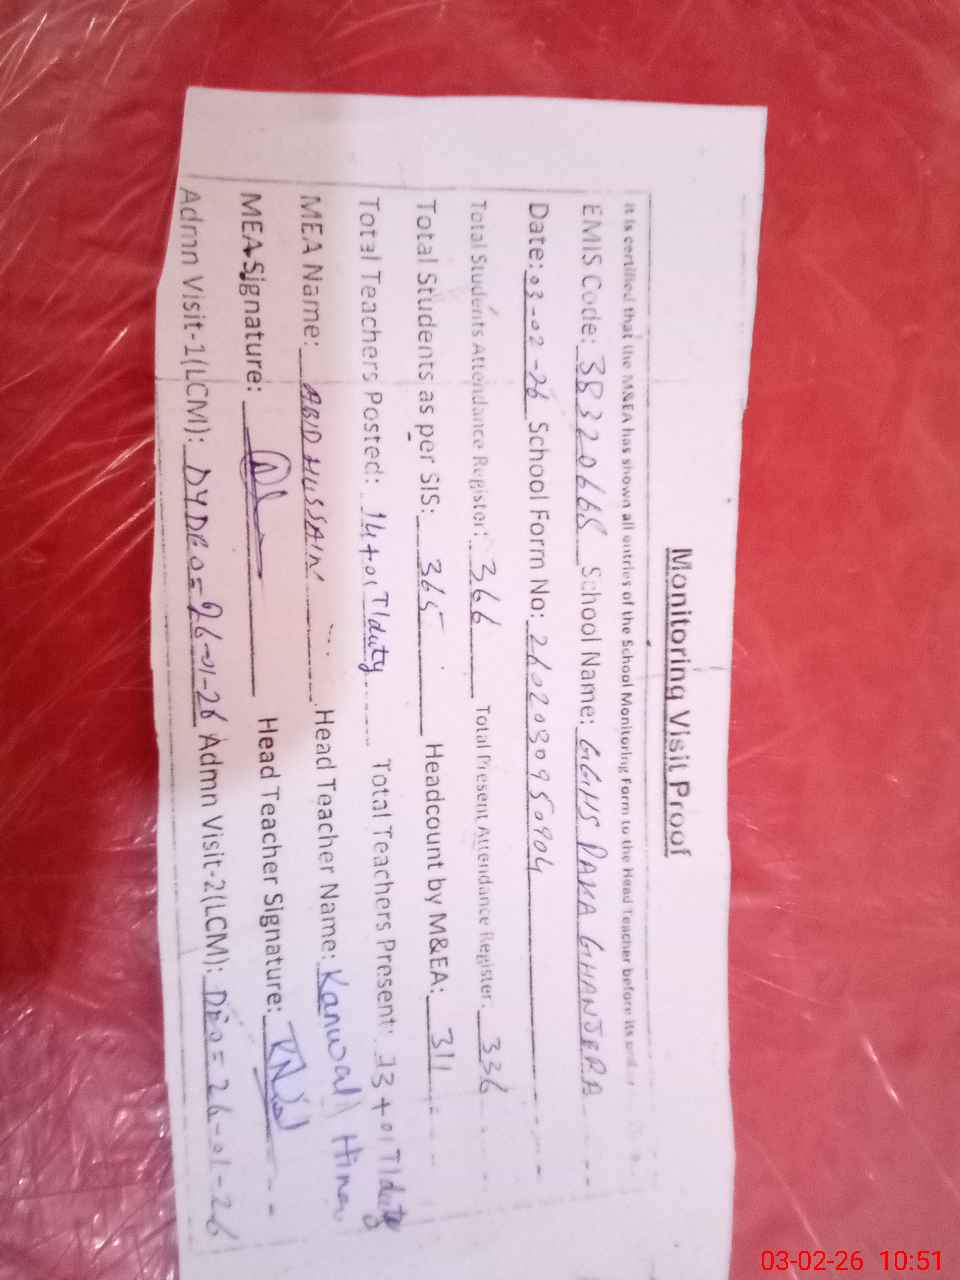 Monitoring Visit Proof
It is certified that the M&EA has shown all entries of the School Monitoring Form to the Head Teacher before its
EMIS Code: 38320665 School Name: GGHS PAKA GHANJERA
Date: 03-02-26 School Form No: 2602030950904
Total Students Attendance Register: 366 Total Present Attendance Register: 336
Total Students as per SIS: 365 Headcount by M&EA: 311
Total Teachers Posted: 14+01 T/duty Total Teachers Present: 13+01 T/duty
MEA Name: ABID HUSSAIN Head Teacher Name: Kanwal Hina
MEA Signature: Head Teacher Signature:
Admn Visit-1(LCM): DYDEO= 26-01-26 Admn Visit-2(LCM): DEO= 26-01-26
03-02-26 10:51